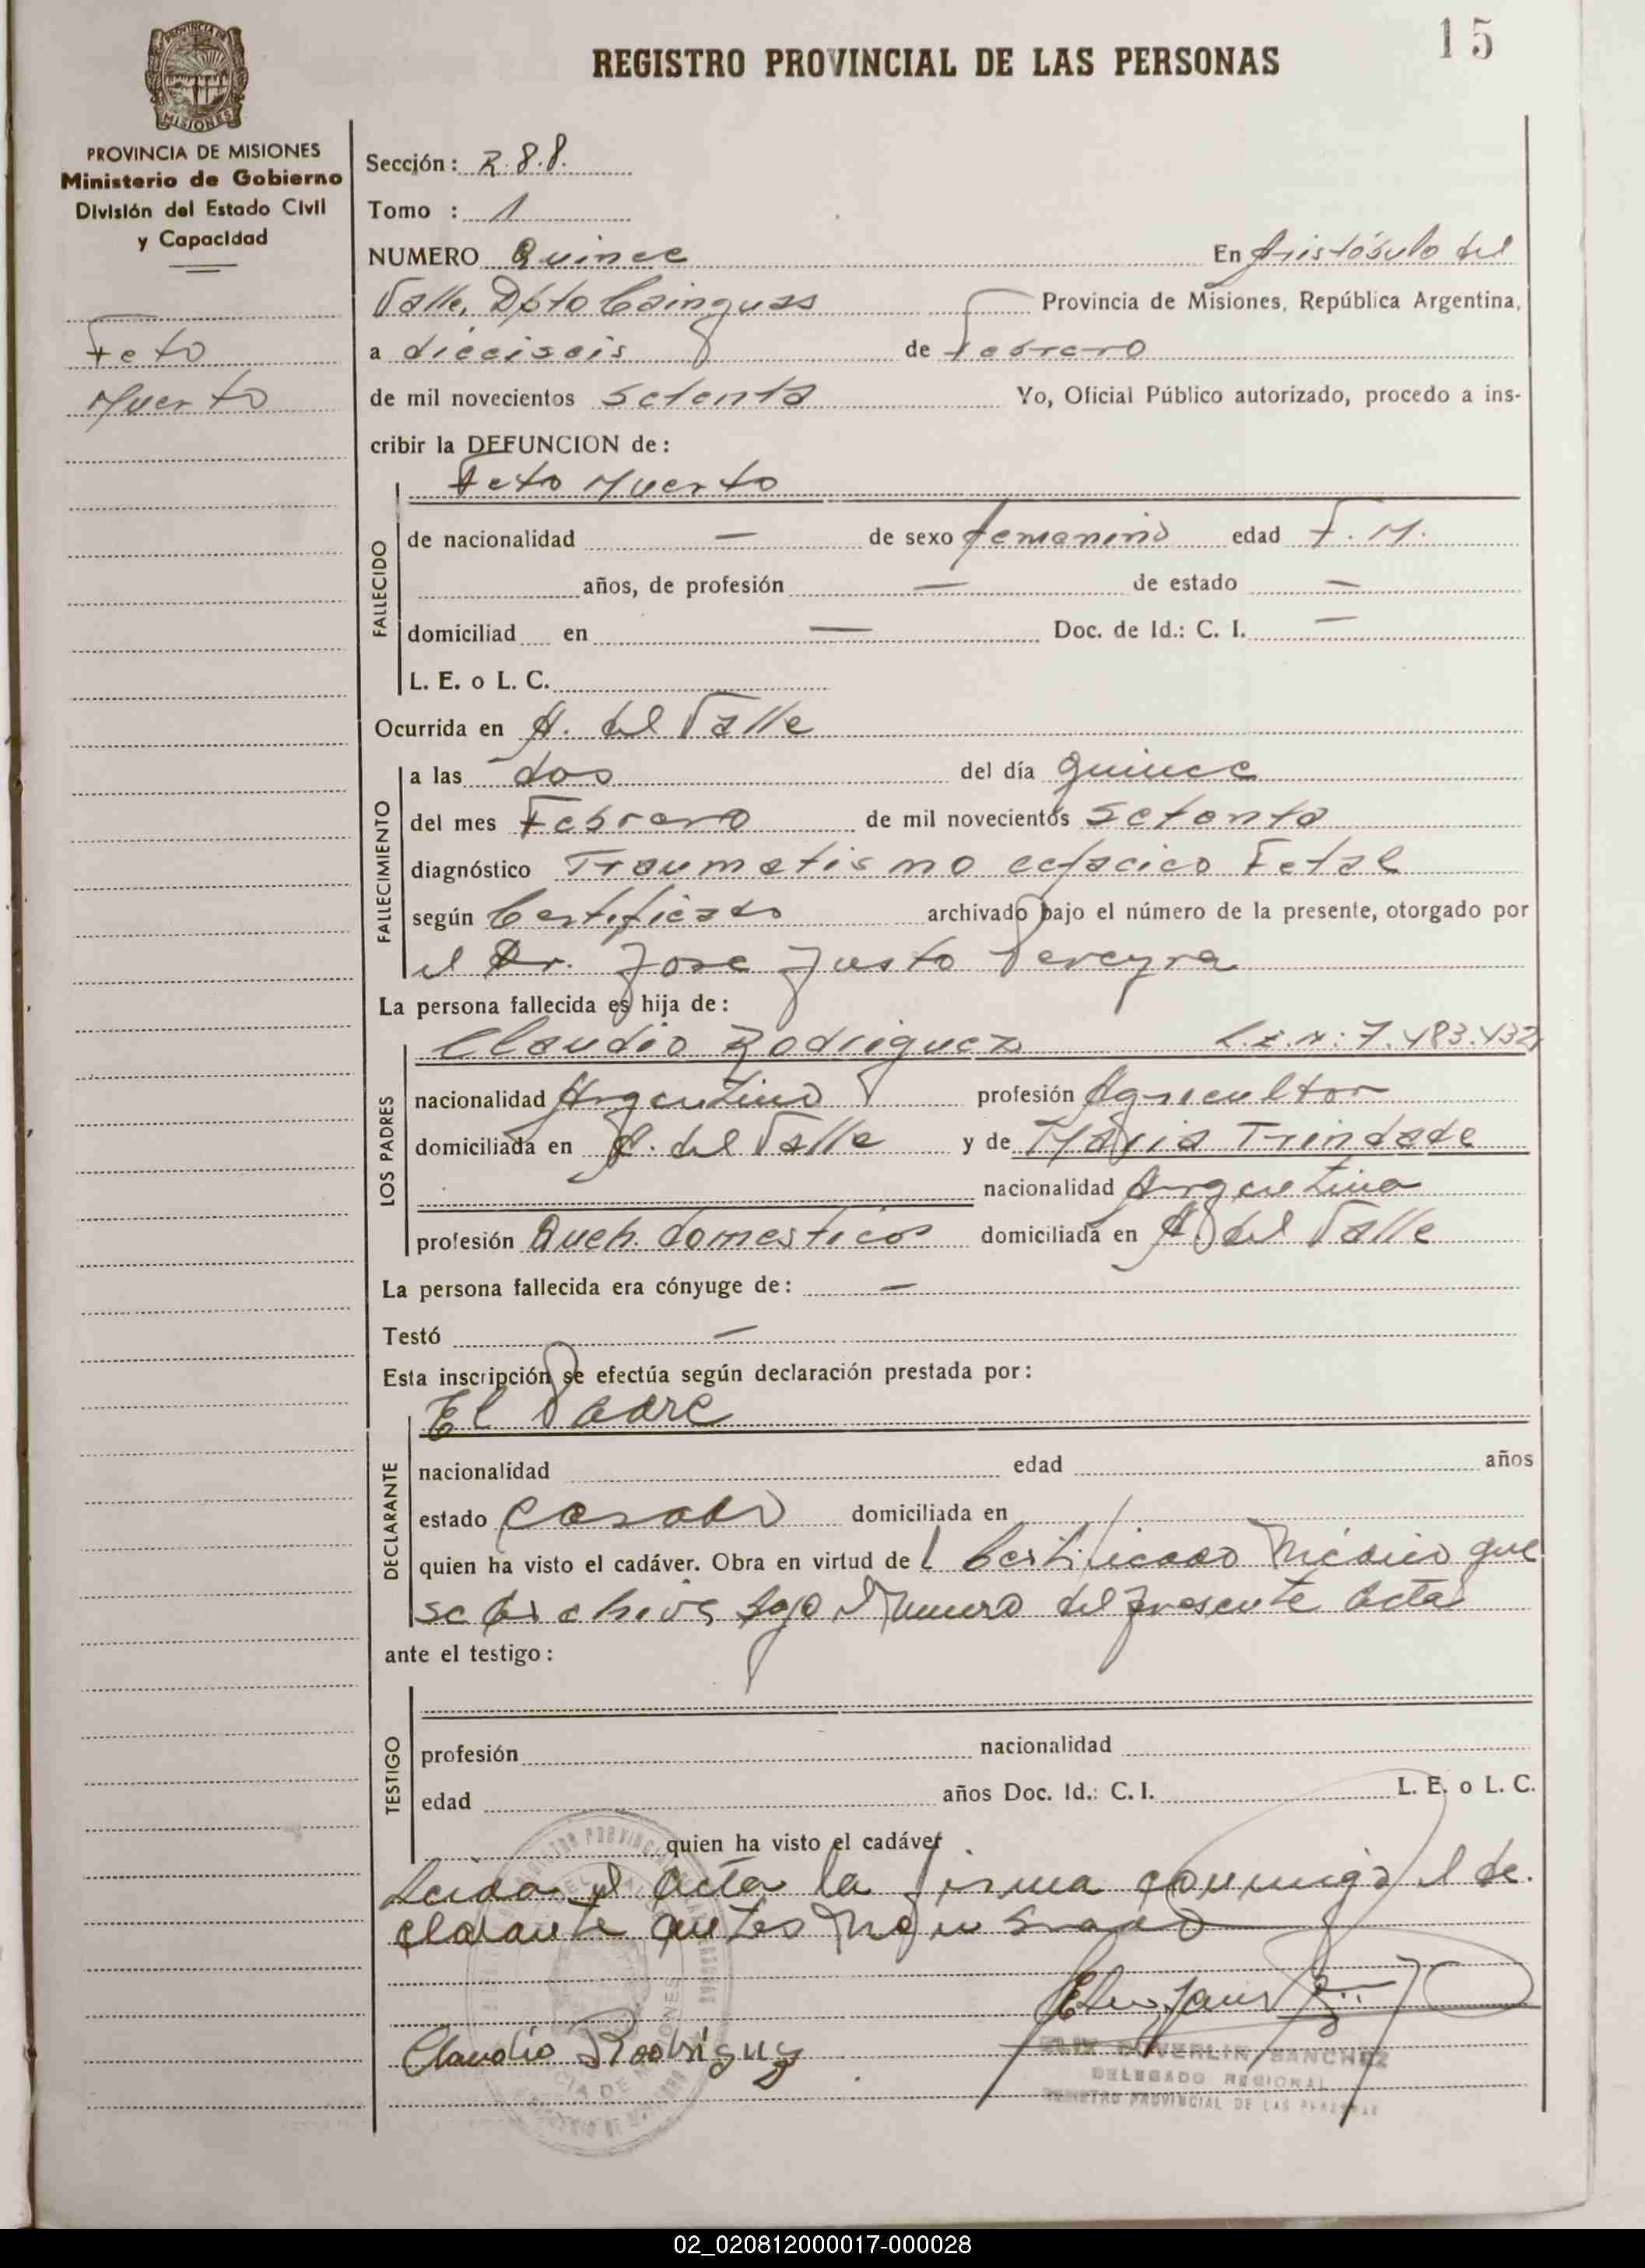 15
REGISTRO PROVINCIAL DE LAS PERSONAS
PROVINCIA DE MISIONES
Ministerio de Gobierno
División del Estado Civil
y Capacidad
Feto
Muerto
Sección: R.8.8.
Tomo : 1
NUMERO Quince En Aristóbulo del
Valle, Dpto Cainguas Provincia de Misiones, República Argentina,
a dieciseis de Febrero
de mil novecientos Setenta Yo, Oficial Público autorizado, procedo a ins-
cribir la DEFUNCION de:
Feto Muerto
FALLECIDO
de nacionalidad — de sexo femenino edad F. M.
años, de profesión — de estado —
domiciliad en — Doc. de Id.: C. I. —
L. E. o L. C.
Ocurrida en A. del Valle
FALLECIMIENTO
a las dos del día quince
del mes Febrero de mil novecientos Setenta
diagnóstico Traumatismo Fetal
según Certificado archivado bajo el número de la presente, otorgado por
el Dr. Jose Justo Pereyra
La persona fallecida es hija de:
LOS PADRES
Claudio Rodriguez L.E.N: 7.483.432
nacionalidad Argentino profesión Agricultor
domiciliada en A. del Valle y de Maria Trindade
nacionalidad Argentina
profesión Queh. domesticos domiciliada en A. del Valle
La persona fallecida era cónyuge de: —
Testó —
Esta inscripción se efectúa según declaración prestada por:
DECLARANTE
El Padre
nacionalidad edad años
estado Casado domiciliada en
quien ha visto el cadáver. Obra en virtud de l Certificado Médico que
se archiva bajo el Numero del presente acta
ante el testigo:
TESTIGO
profesión nacionalidad
edad años Doc. Id.: C. I. L. E. o L. C.
quien ha visto el cadáver
Leida el Acta la firma conmigo el de-
clarante antes
Claudio Rodriguez
SANCHEZ
DELEGADO REGIONAL
REGISTRO PROVINCIAL DE LAS PERSONAS
02_020812000017-000028